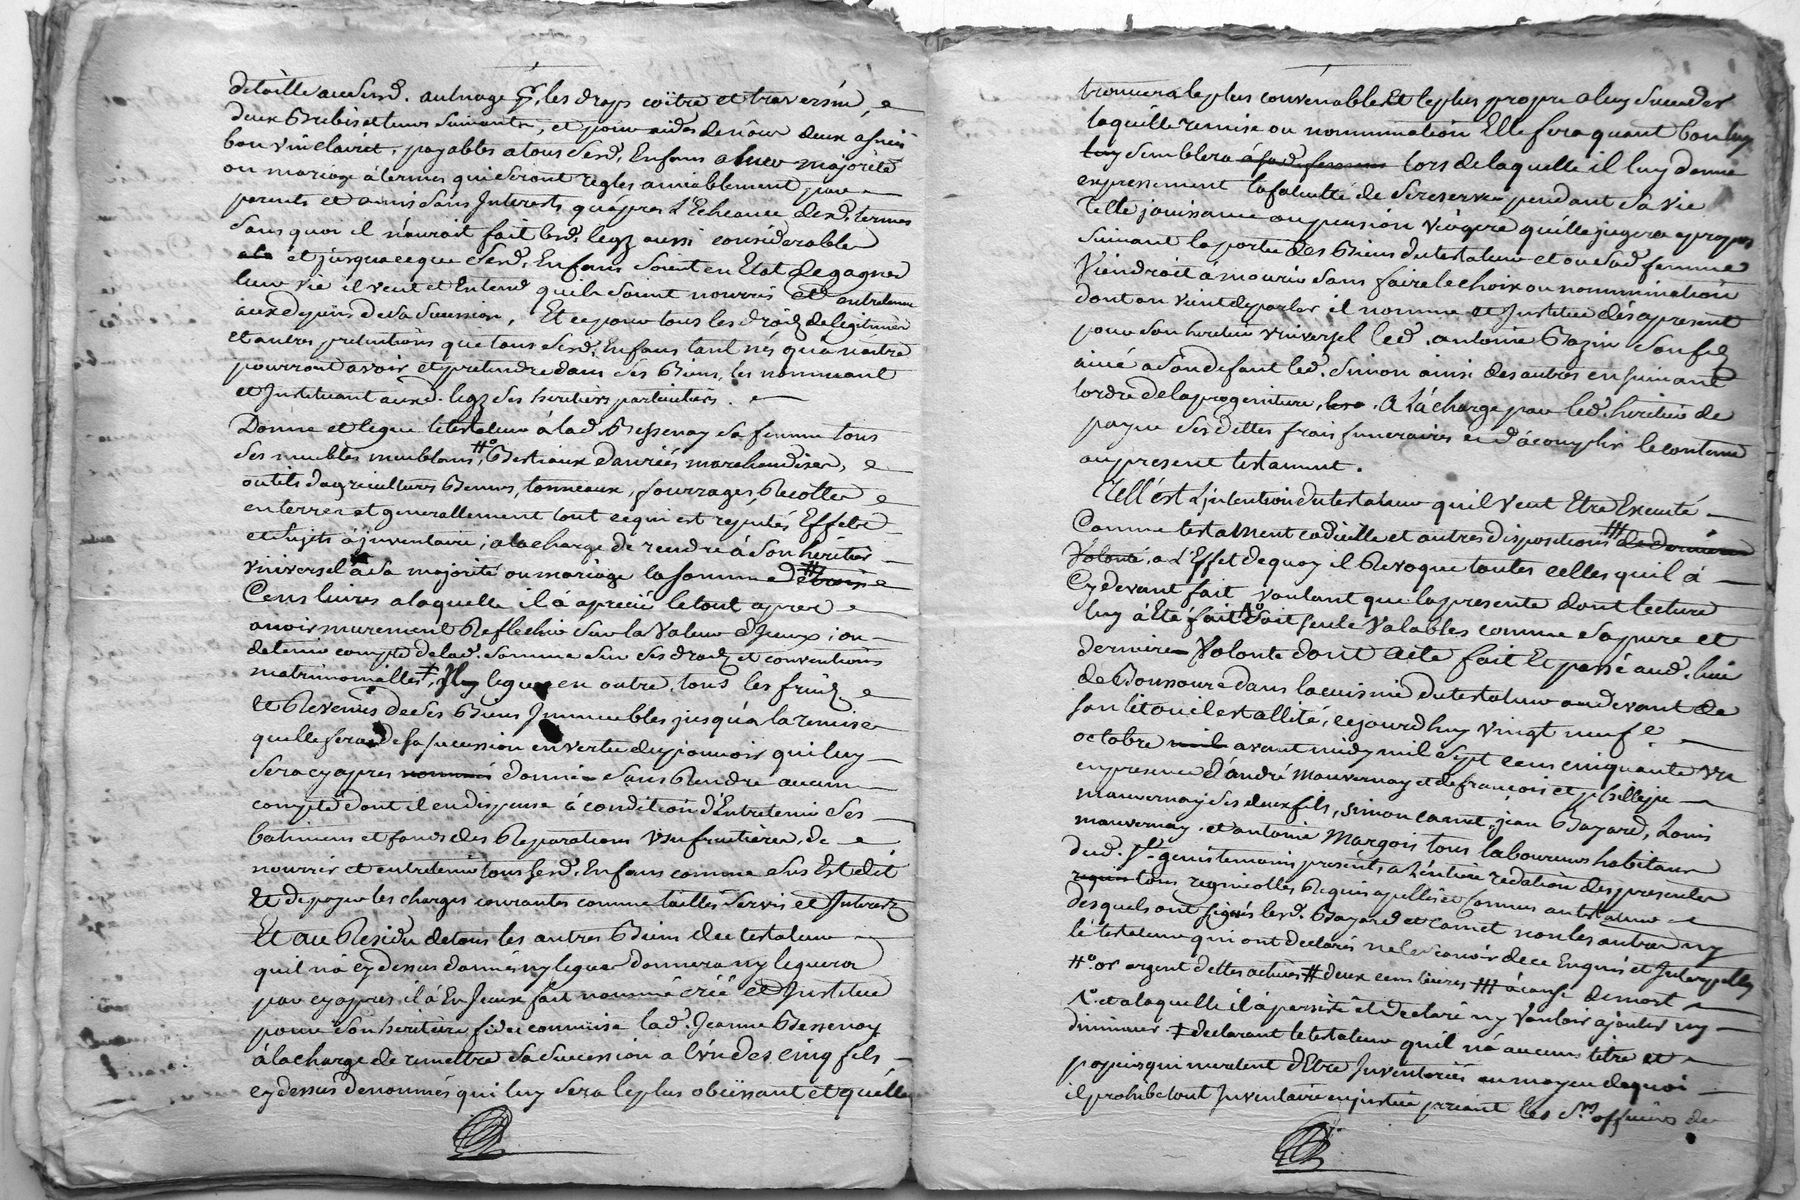 de toille audesd. aulnage &, les draps coitre et traversin,
deux Brebis et leurs suivants, et pour aider de nôce deux asnées
bon vin clairet, payables a tous desd. Enfans a leur majorité
ou mariage à termes qui seront regles amiablement par
parents et amis sans Interests, qu'apres l'Echeance desd. termes
sans quoy il n'auroit fait lesd. legz aussi considerables
et jusqua ce que desd. Enfans soient en Etat de gagner
leur vie il veut et Entend quils soint nourris et entretenus
aux depens de sa succession, Et ce pour tous les droits de legitimes
et autres pretentions que tous desd. Enfans tant nés qu'a naitre
pourront avoir et pretendre dans ses Biens, les nommant
et Instituant auxd. legz ses heritiers particuliers.
Donne et legue le testateur à lad. Bessenay sa femme tous
ses meubles meublans, #° Bestiaux danrées marchandises,
outils d'agricultures Bennes, tonneaux, fourrages, Recoltes
en terres et generallement tout ce qui est reputés Effets
et sujets à inventaire; a la charge de rendre à son heritier
universel à sa majorité ou mariage la somme de # trois
Cens livres a laquelle il à aprecié le tout apres
avoir murement Reflechir sur la Valeur d'Iceux; ou
de tenir compte de lad. somme sur ses droits et conventions
matrimonielles ‡, Il luy legue en outre, tous les fruits
et Revenus de ses Biens Immeubles jusqu'a la remise
quelle fera de sa succession en vertu du pouvoir qui luy
sera cy apres nommé donné sans Rendre aucun
compte dont il en dispense à condition d'Entretenir ses
batimens et fonds des Reparations Usufruitières, de
nourrir et entretenir tous sesd. Enfans comme dhs Est dit
et de payer les charges courantes comme tailles servis et Interests
Et au Residu de tous les autres Biens du testateur
quil n'à cy dessus donnés ny legues donnera ny leguera
par cy apres il à En Iceux fait nommé créé et Institue
pour son heritière fidei commise lad. Jeanne Bessenay
à la charge de remettre sa succession a l'un des cinq fils
cy dessus denommés qui luy sera le plus obeissant et qu'elle
trouvera le plus convenable Et le plus propre a luy succeder
laquelle remise ou nommination Elle fera quant bon luy
luy semblera à sad. femme lors de laquelle il luy donne
expressement la faculté de se reserver pendant sa vie
telle jouissance ou pension Viagere qu'elle jugera apropos
suivant la portée des Biens du testateur et ou sad. femme
Viendroit à mourir sans faire le choix ou nommination
dont on vient de parler il nomme et Institue dès apresent
pour son heritier Universel led. antoine Bazin son fils
ainé a son defaut led. Simon ainsi des autres en suivant
l'ordre de la progeniture, A la charge par led. heritier de
payer ses dettes frais funeraires et d'acomplir le contenu
au present testament.
Telle est l'intention du testateur quil Veut Etre Executé
Comme testament codicille et autres dispositions ### de derniere
Volonté a l'Effet de quoy il Revoque toutes celles quil à
Cy devant fait Voulant que la presente dont lecture
luy à Eté fait Λ° soit seule Valables comme sa pure et
derniere Volonté dont acte fait Et passé aud. lieu
de Boussoure dans la cuisine du testateur au devant de
son lit ou il est allité, ce jourd'huy vingt neufe.
octobre mil avant midy mil sept cens cinquante un
en presence d'andré mauvernay et de françois et philippe
mauvernay ses deux fils, simon carret, jean Bayard, Louis
mauvernay et antoine Margois tous laboureurs habitans
dud. St. genis temoins present a l'entiere redation des presentes
requis tous regnicolles Requis apellés et Connus au testateur
desquels ont signés lesd. Bayard et Carret non les autres ny
le testateur qui ont declarés ne le scavoir de ce Enquis et Interpellés
#° or argent dettes actives # deux cens livres ### à cause de mort
Λ° et a laquelle il à persisté et declaré ny Vouloir ajouter ny
diminuer ‡ declarant le testateur quil n'à aucuns titre et
papiers qui meritent d'Etre Inventoriés au moyen de quoi
il prohibe tout Inventaire en justice priant les Srs. officiers de